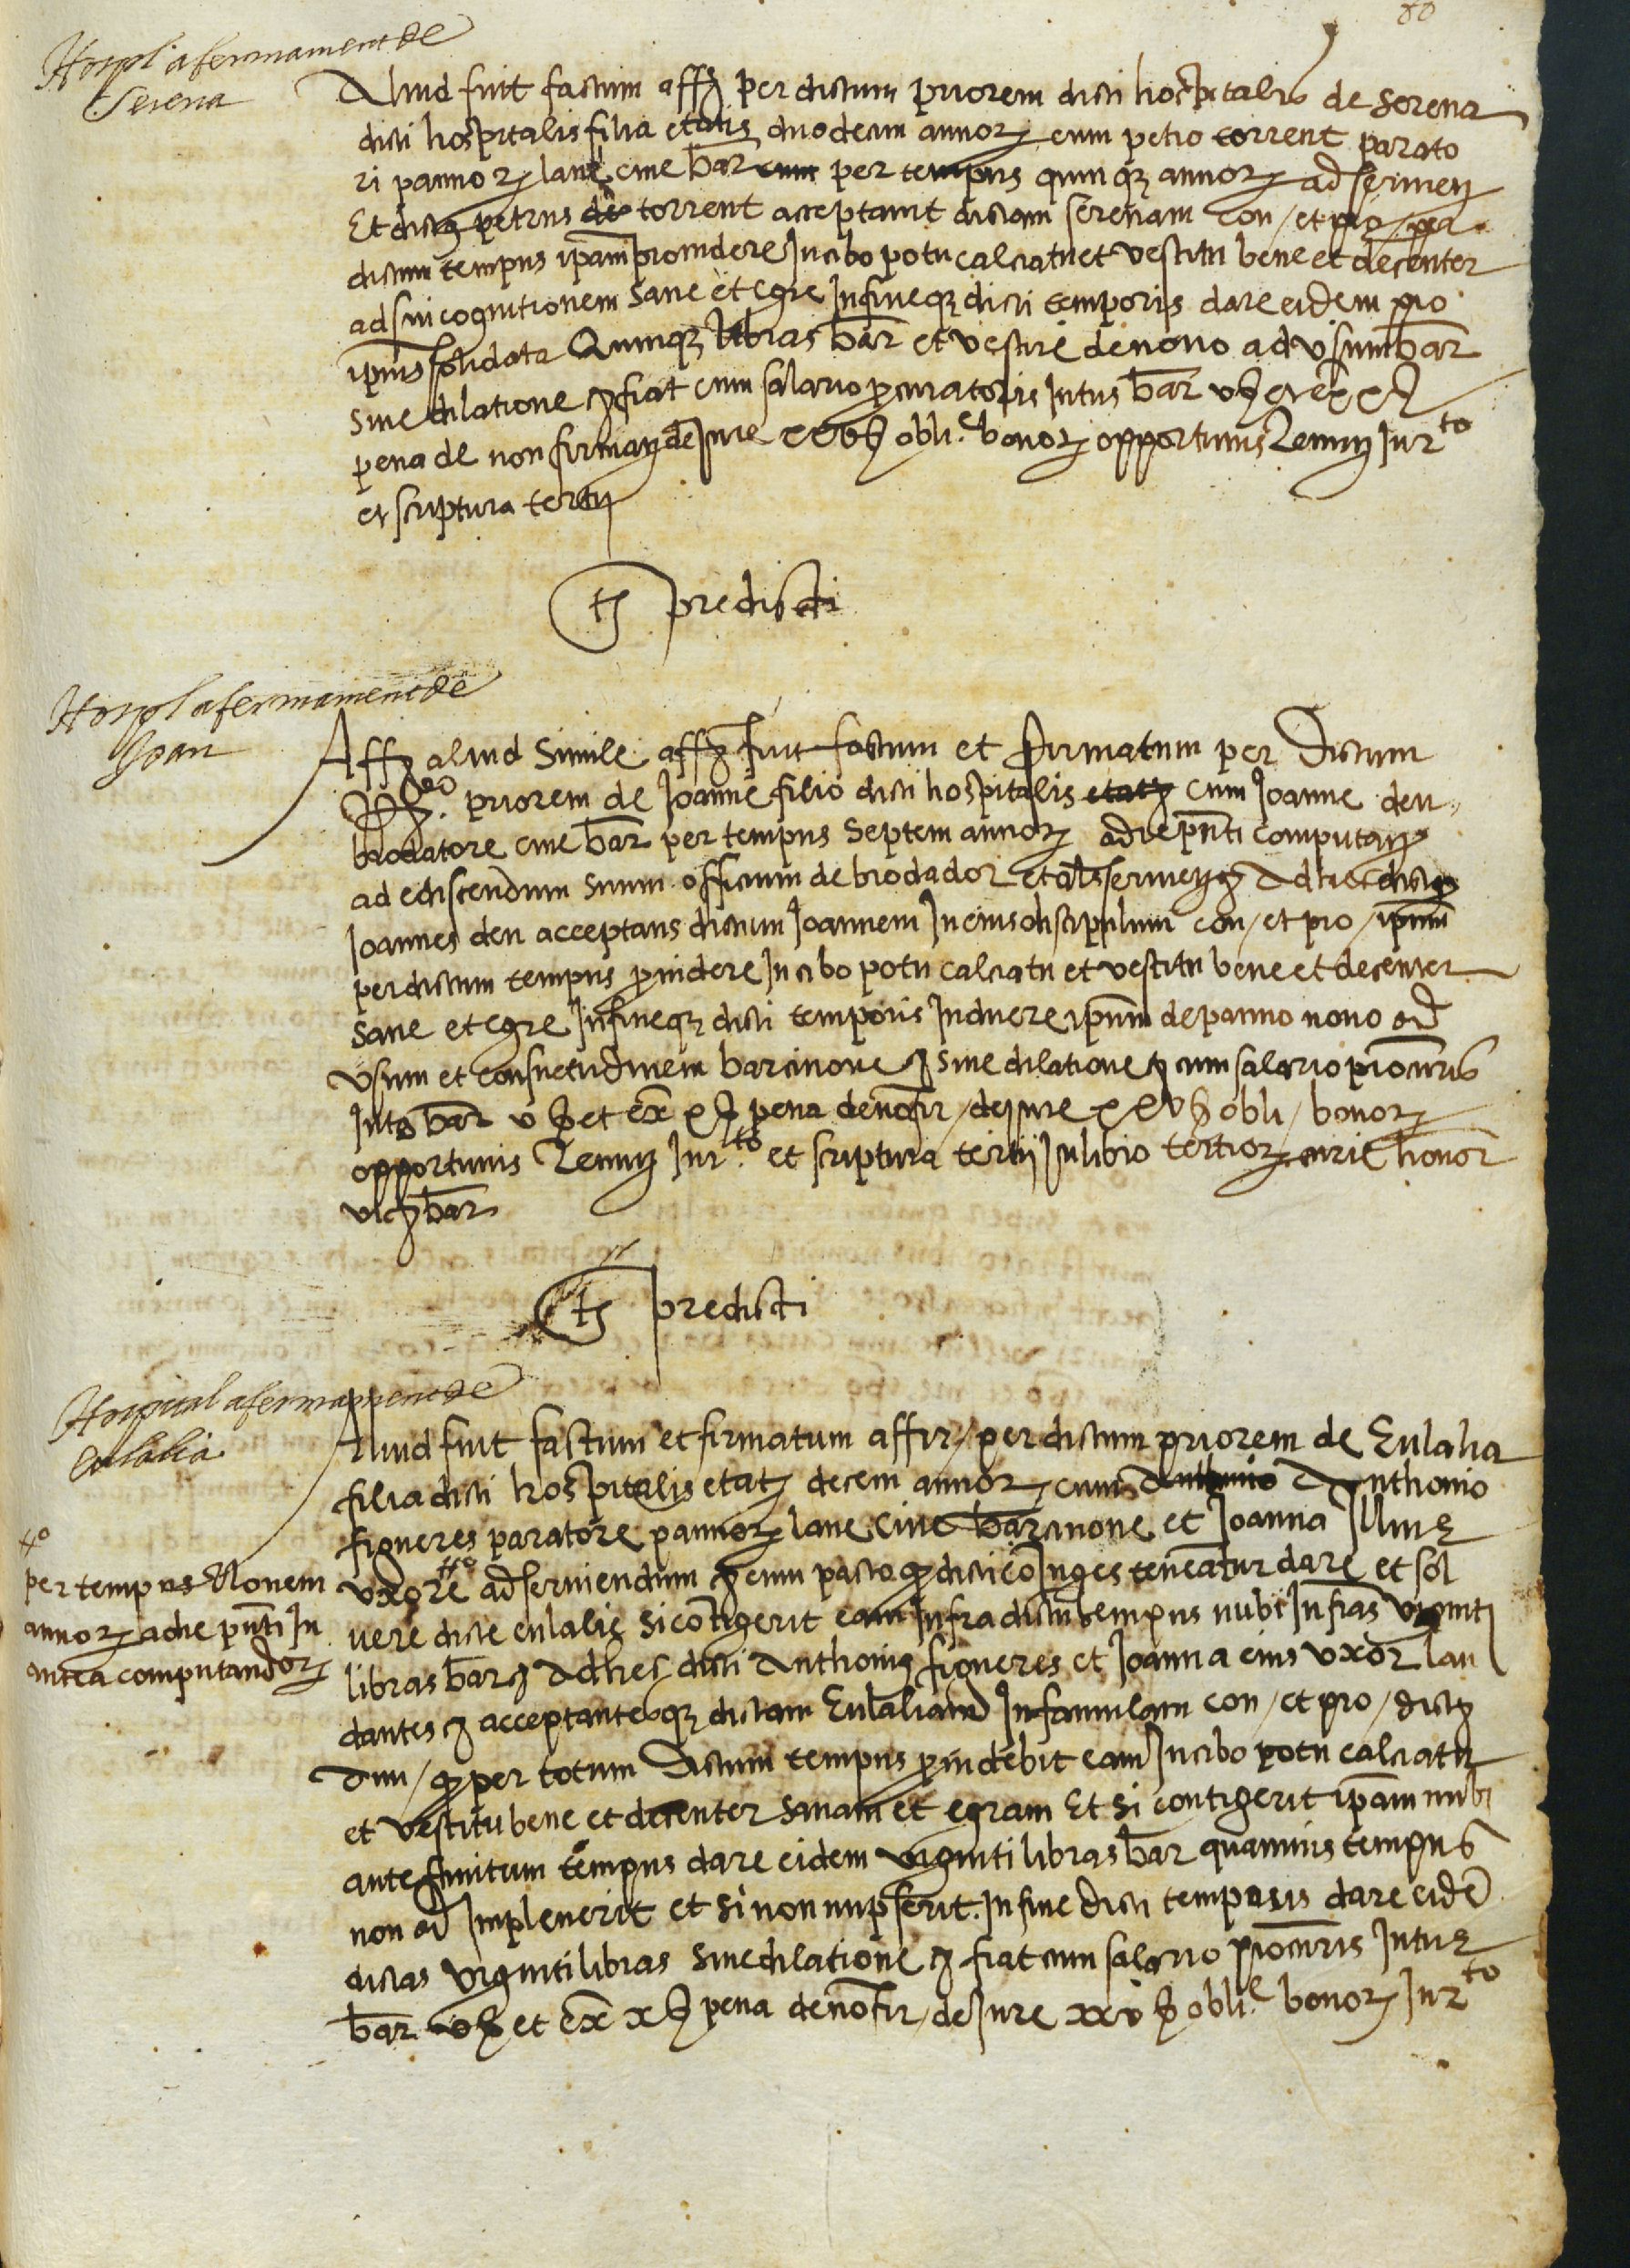 80
Hospl afermament de
Serena
Aliud fuit factum aff per dictum priorem dicti hospitalis de serena
dicti hospitalis filia etatis duodecim annor cum petro torrent parato
ri pannor lane cive bar cum per tempus quinqz annor ad servien
Et dictus petrus de torrent acceptavit dictam serenam con / et pro / per
dictum tempus ipam providere In cibo potu calciatu et vestitu bene et decenter
ad sui cognitionem sane et egre In fineqz dicti temporis dare eidem pro
ipius solidata Quinqz libras bar et vestire de novo ad usum bar
sine dilatione et fiat cum salario procuratoris Intus bar v s et
pena de non firman de Jure xxv s obli.e bonor opportunis Renun Jur.to
et scriptura tertii
ts predicti
Hospl afermament de
Joan
Aff aliud simile aff fuit factum et firmatum per dictum
priorem de Joanne filio dicti hospitalis etatis cum Joanne den
brodatore cive bar per tempus septem annor a die pnti computan
ad ediscendum suum officium de brodador et als servien Ad hec dictus
Joannes den acceptans dictum Joannem In eius discipulum con / et pro / ipum
per dictum tempus providere In cibo potu calciatu et vestitu bene et decenter
sane et egre In fineqz dicti temporis Induere ipum de panno novo ad
usum et consuetudinem barcinone et sine dilatione et cum salario procuris
Intus bar v s et ex x s pena de no fir / de jure xxv s obli / bonor
opportunis Renun Jur.to et scriptura tertii In libro tertior curie honor
vic bar
ts predicti
Hospital afermament de
Eulalia
Aliud fuit factum et firmatum affir / per dictum priorem de Eulalia
filia dicti hospitalis etat decem annor cum Anthonio Anthonio
figueres paratore pannor lane cive barcinone et Joanna Illius
uxore ad serviendum et cum pacto q dicti conjuges teneatur dare et sol
per tempus Novem
annor a die pnti In
antea computandor
vere dicte eulalie si contigerit eam Infra dictum tempus nubi Infras viginti
libras bar et Ad hec dicti Anthonius figueres et Joanna eius uxor lau
dantes et acceptantesqz dictam Eulaliam In famulam con / et pro / dicto
dno / q per totum dictum tempus providebit eam In cibo potu calciatu
et vestitu bene et decenter sanam et egram Et si contigerit ipam nubi
ante finitum tempus dare eidem viginti libras bar quamvis tempus
non ad Impleverit et si non nupserit. In fine dicti temporis dare eide
dictas viginti libras sine dilatione et fiat cum salario procuris Intus
bar v s et ex x s pena de no fir / de Jure xxv s obli.e bonor Jur.to